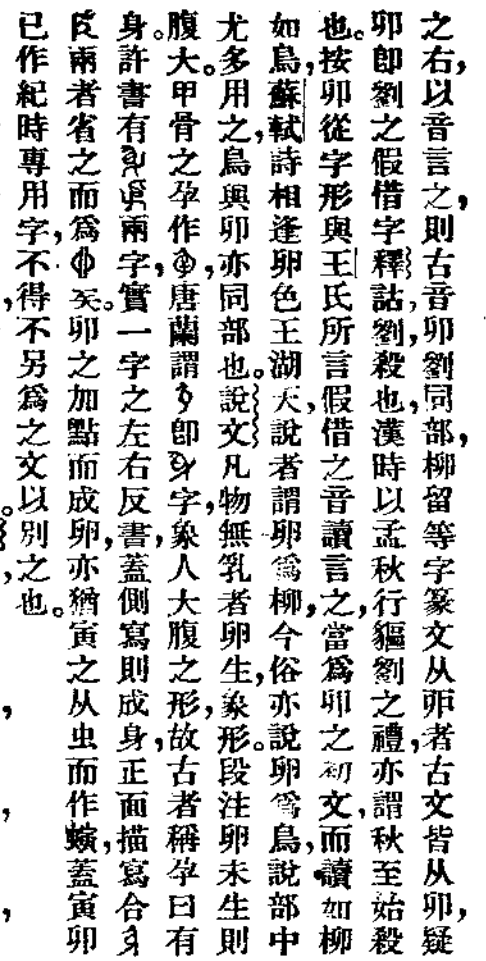 之右，以音言之，則古音卯劉同部，柳留等字篆文从丣者古文皆从卯，疑
卯即劉之假借字釋詁，劉，殺也，漢時以孟秋行貙劉之禮，亦謂秋至始殺
也。按卯從字形與王氏所言假借之音讀言之，當爲卯之初文，而讀如柳
如鳥，蘇軾詩相逢卵色王湖天，說者謂卵爲柳，今俗亦說卵爲鳥，說部中
尤多用之，鳥與卯亦同部也。說文凡物無乳者卵生，象形。段注卵未生則
腹大。甲骨之孕作，唐蘭謂即字，象人大腹之形，故古者稱孕曰有
身。許書有兩字，實一字之左右反書，蓋側寫則成身，正面描寫合
兩者省之而爲矣。卯之加點而成卵，亦猶寅之从虫而作螾，蓋寅卯
已作紀時專用字，不得不另爲之文以別之也。